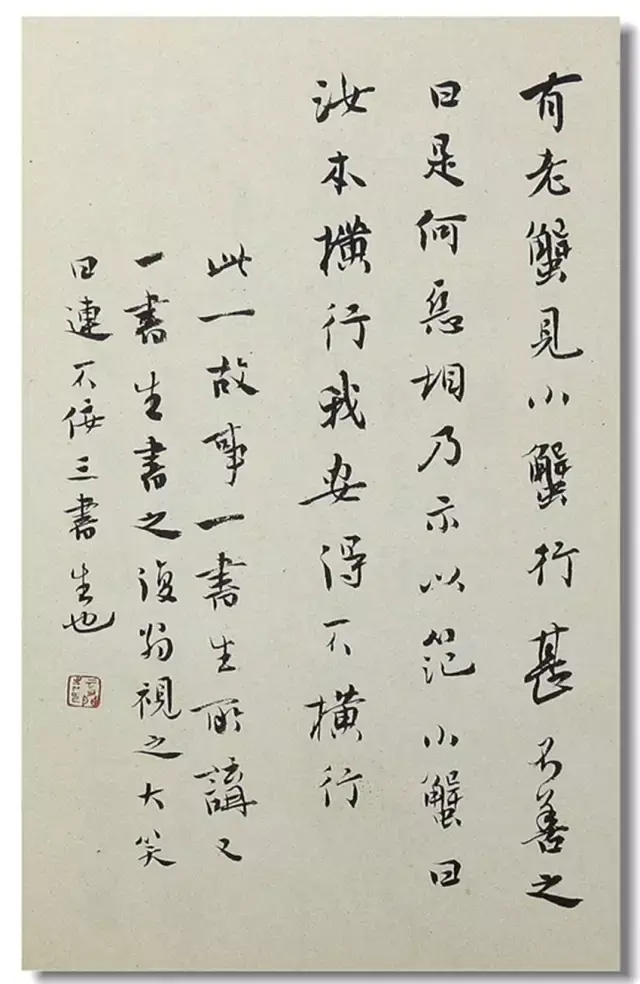 有老蟹見小蟹行甚不善之
曰是何惡相乃示以笵小蟹曰
汝本橫行我安得不橫行
此一故事一書生所講又
一書生書之復翁視之大笑
曰連不佞三書生也